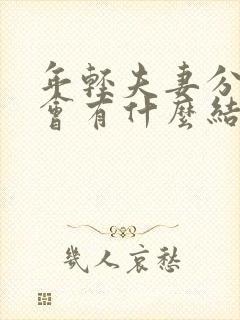 年輕夫妻分
會有什麼結
幾人哀愁